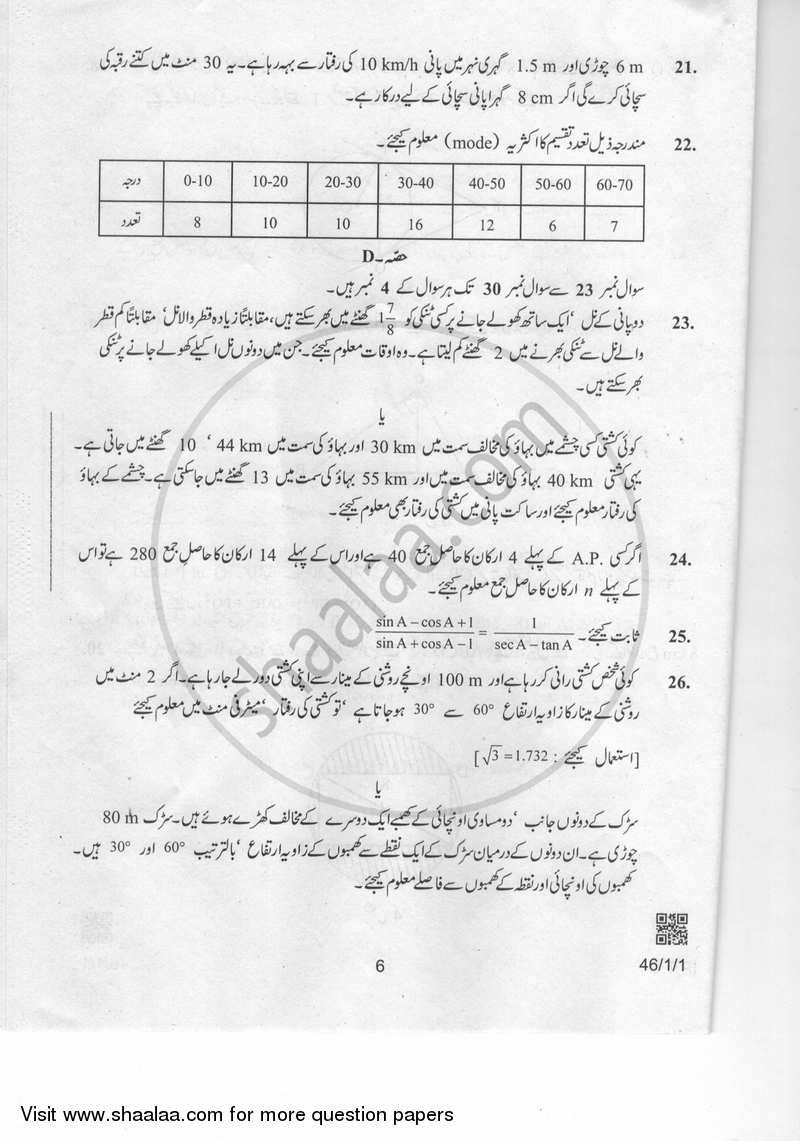 21. 6 m چوڑی اور 1.5 m گہری نہر میں پانی 10 km/h کی رفتار سے بہہ رہا ہے۔ یہ 30 منٹ میں کتنے رقبہ کی
سچائی کرے گی اگر 8 cm گہرا پانی سچائی کے لیے درکار ہے۔
22. مندرجہ ذیل تعدد تقسیم کا اکثریہ (mode) معلوم کیجئے۔
درجہ 0-10 10-20 20-30 30-40 40-50 50-60 60-70
تعدد 8 10 10 16 12 6 7
حصّہ۔D
سوال نمبر 23 سے سوال نمبر 30 تک ہر سوال کے 4 نمبر ہیں۔
23. دو پانی کے نل ‘ایک ساتھ کھولے جانے پر کسی ٹنکی کو 1 7/8 گھنٹے میں بھر سکتے ہیں، مقابلتاً زیادہ قطر والا نل‘ مقابلتاً کم قطر
والے نل سے ٹنکی بھرنے میں 2 گھنٹے کم لیتا ہے۔ وہ اوقات معلوم کیجئے۔ جن میں دونوں نل اکیلے کھولے جانے پر ٹنکی
بھر سکتے ہیں۔
یا
کوئی کشتی کسی چشمے میں بہاؤ کی مخالف سمت میں 30 km اور بہاؤ کی سمت میں 44 km ‘ 10 گھنٹے میں جاتی ہے۔
یہی کشتی 40 km بہاؤ کی مخالف سمت میں اور 55 km بہاؤ کی سمت میں 13 گھنٹے میں جا سکتی ہے۔ چشمے کے بہاؤ
کی رفتار معلوم کیجئے اور ساکت پانی میں کشتی کی رفتار بھی معلوم کیجئے۔
24. اگر کسی A.P. کے پہلے 4 ارکان کا حاصل جمع 40 ہے اور اس کے پہلے 14 ارکان کا حاصلِ جمع 280 ہے تو اس
کے پہلے n ارکان کا حاصل جمع معلوم کیجئے۔
25. ثابت کیجئے۔ (sin A – cos A + 1)/(sin A + cos A – 1) = 1/(sec A – tan A)
26. کوئی شخص کشتی رانی کر رہا ہے اور 100 m اونچے روشنی کے مینار سے اپنی کشتی دور لے جا رہا ہے۔ اگر 2 منٹ میں
روشنی کے مینار کا زاویہ ارتفاع 60° سے 30° ہو جاتا ہے ‘تو کشتی کی رفتار ‘میٹر فی منٹ میں معلوم کیجئے
[استعمال کیجئے : √3 = 1.732]
یا
سڑک کے دونوں جانب ‘دو مساوی اونچائی کے کھمبے ایک دوسرے کے مخالف کھڑے ہوئے ہیں۔ سڑک 80 m
چوڑی ہے۔ ان دونوں کے درمیان سڑک کے ایک نقطے سے کھمبوں کے زاویہ ارتفاع ‘بالترتیب 60° اور 30° ہیں۔
کھمبوں کی اونچائی اور نقطہ کے کھمبوں سے فاصلے معلوم کیجئے۔
6
46/1/1
shaalaa.com
Visit www.shaalaa.com for more question papers